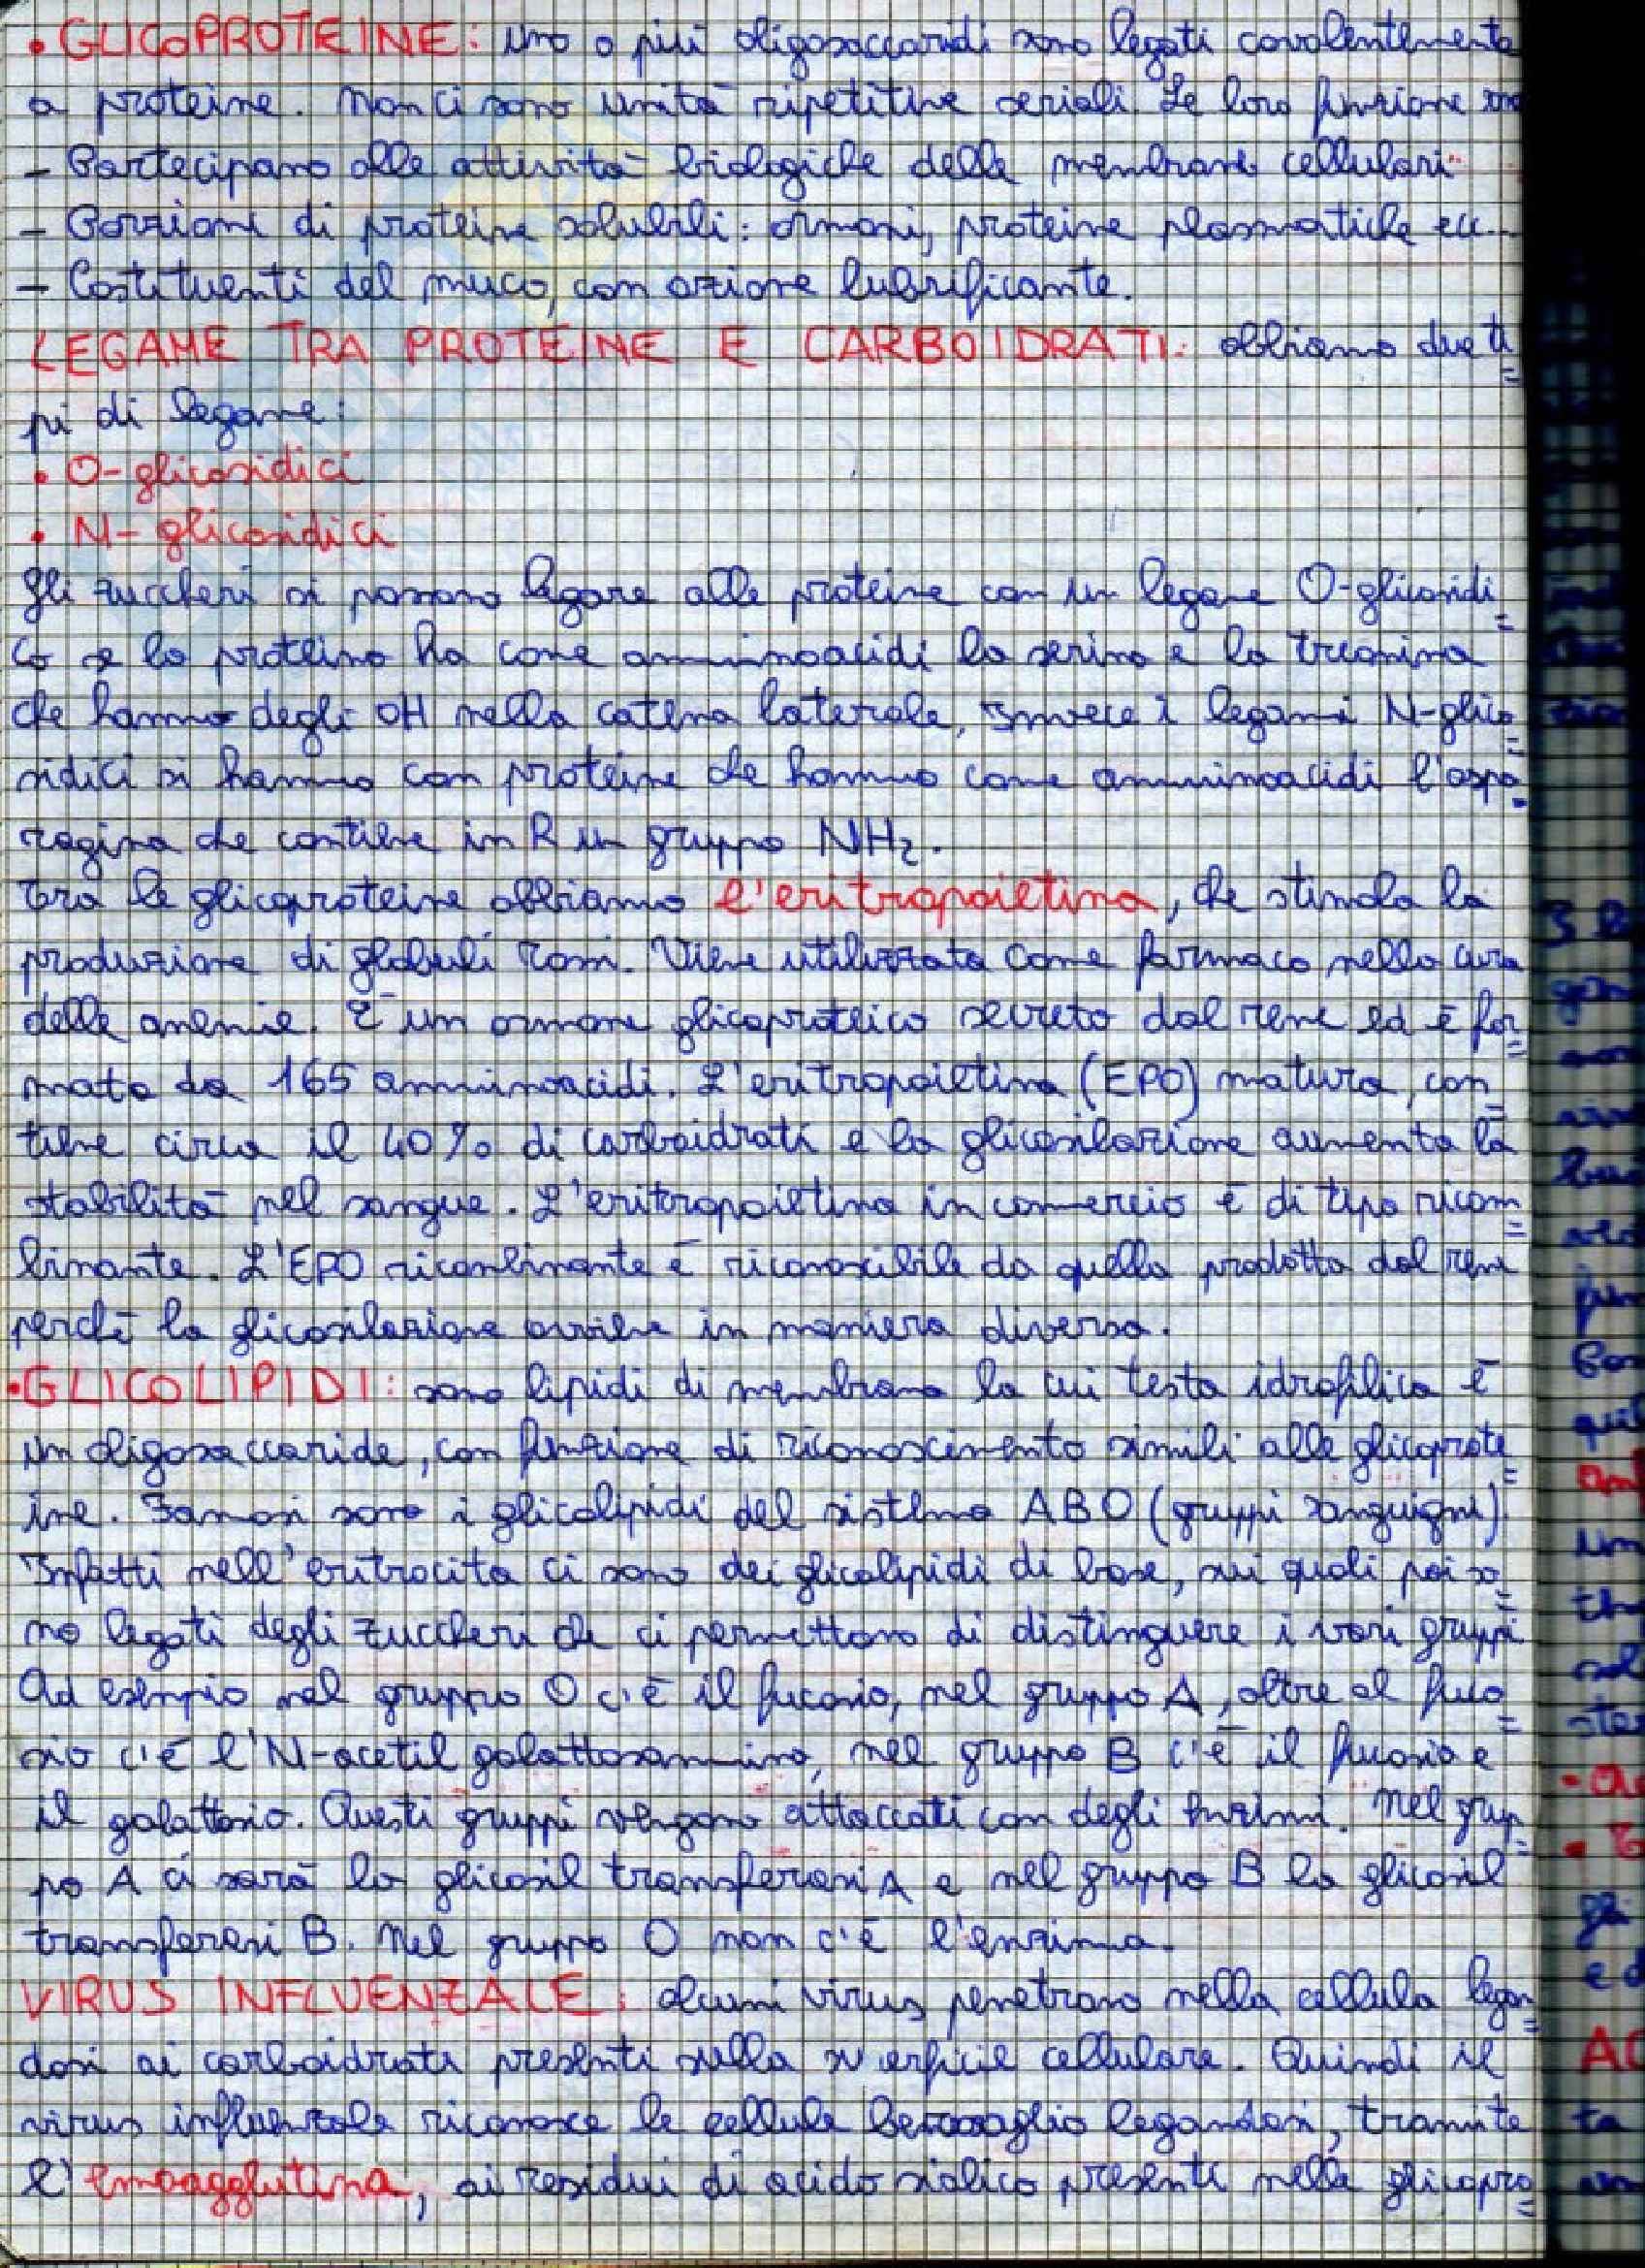 • GLICOPROTEINE: uno o più oligosaccaridi sono legati covalentemente
a proteine. Non ci sono unità ripetitive seriali. Le loro funzione sono
- Partecipano alle attività biologiche delle membrane cellulari
- Porzioni di proteine solubili: ormoni, proteine plasmatiche ecc...
- Costituenti del muco, con azione lubrificante.
LEGAME TRA PROTEINE E CARBOIDRATI: abbiamo due ti=
pi di legame:
• O-glicosidici
• N-glicosidici
Gli zuccheri si possono legare alle proteine con un legame O-glicosidi=
co se la proteina ha come amminoacidi la serina e la treonina
che hanno degli OH nella catena laterale. Invece i legami N-glico=
sidici si hanno con proteine che hanno come amminoacidi l'aspa-
ragina che contiene in R un gruppo NH2.
Tra le glicoproteine abbiamo l'eritropoietina, che stimola la
produzione di globuli rossi. Viene utilizzata come farmaco nella cura
delle anemie. È un ormone glicoproteico secreto dal rene ed è for=
mato da 165 amminoacidi. L'eritropoietina (EPO) matura, con=
tiene circa il 40% di carboidrati e la glicosilazione aumenta la
stabilità nel sangue. L'eritropoietina in commercio è di tipo ricom=
binante. L'EPO ricombinante è riconoscibile da quella prodotta dal rene
perchè la glicosilazione avviene in maniera diversa.
• GLICOLIPIDI: sono lipidi di membrana la cui testa idrofilica è
un oligosaccaride, con funzione di riconoscimento simili alle glicoprote=
ine. Famosi sono i glicolipidi del sistema ABO (gruppi sanguigni).
Infatti nell'eritrocita ci sono dei glicolipidi di base, sui quali poi so=
no legati degli zuccheri che ci permettono di distinguere i vari gruppi
Ad esempio nel gruppo O c'è il fucosio, nel gruppo A, oltre al fuco=
sio c'è l'N-acetil galattosammina, nel gruppo B c'è il fucosio e
il galattosio. Questi gruppi vengono attaccati con degli enzimi. Nel grup=
po A ci sarà la glicosil transferasi A e nel gruppo B la glicosil
transferasi B. Nel gruppo O non c'è l'enzima.
VIRUS INFLUENZALE: alcuni virus penetrano nella cellula legan=
dosi ai carboidrati presenti sulla superficie cellulare. Quindi il
virus influenzale riconosce le cellule bersaglio legandosi, tramite
l'emoagglutina, ai residui di acido sialico presenti nella glicopro=